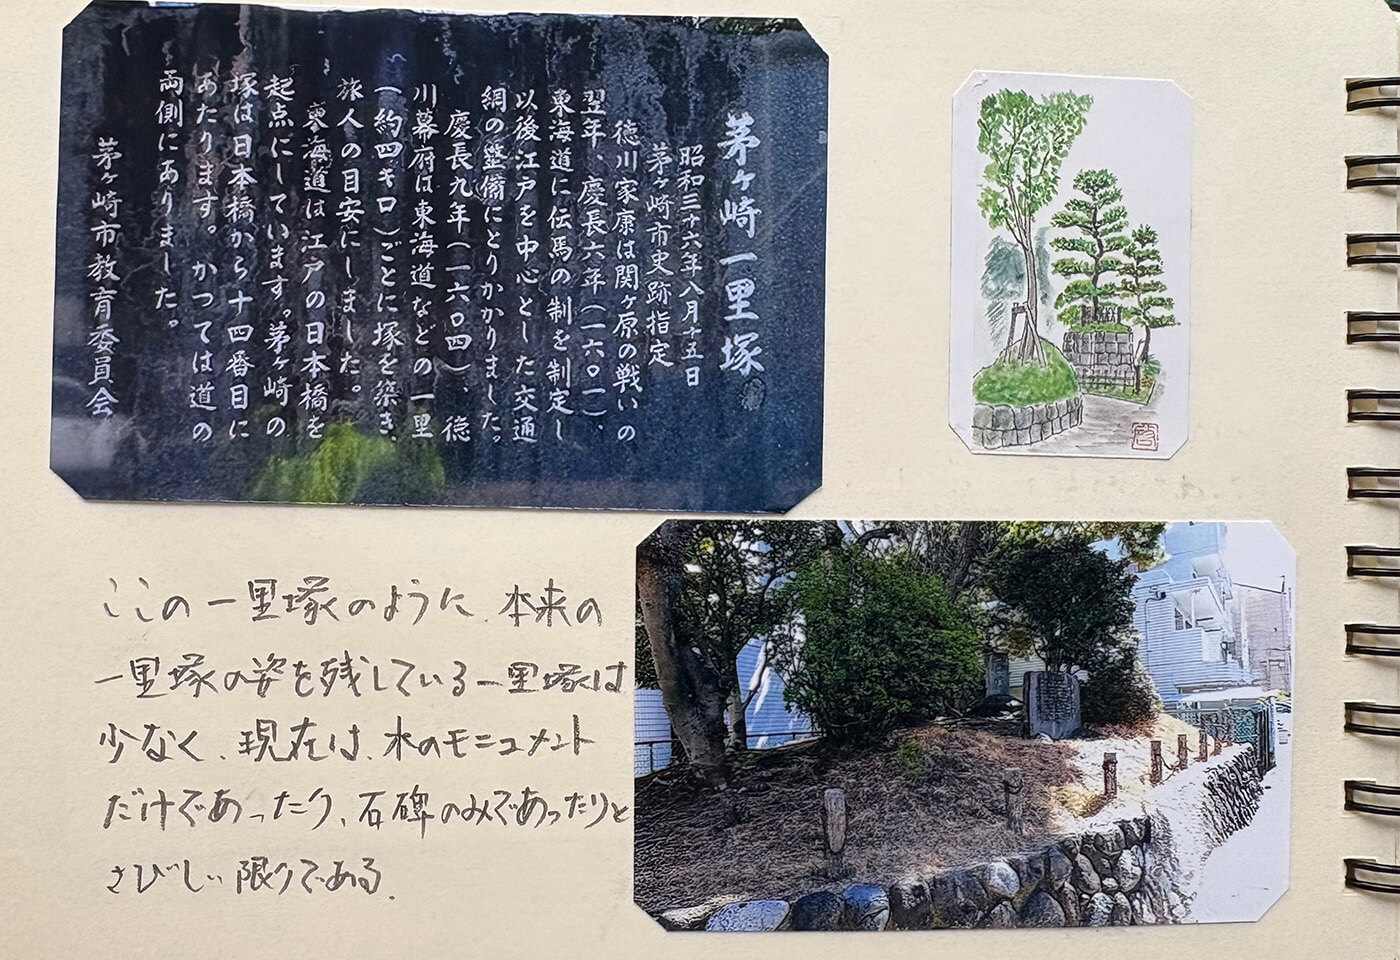 茅ヶ崎一里塚
昭和三十六年八月十五日
茅ヶ崎市史跡指定
徳川家康は関ヶ原の戦いの
翌年、慶長六年(一六〇一)、
東海道に伝馬の制を制定し
以後江戸を中心とした交通
網の整備にとりかかりました。
慶長九年(一六〇四)、徳
川幕府は東海道などの一里
(約四キロ)ごとに塚を築き、
旅人の目安にしました。
東海道は江戸の日本橋を
起点にしています。茅ヶ崎の
塚は日本橋から十四番目に
あたります。かつては道の
両側にありました。
茅ヶ崎市教育委員会
ここの一里塚のように、本来の
一里塚の姿を残している一里塚は
少なく、現在は、木のモニュメント
だけであったり、石碑のみであったりと
さびしい限りである。